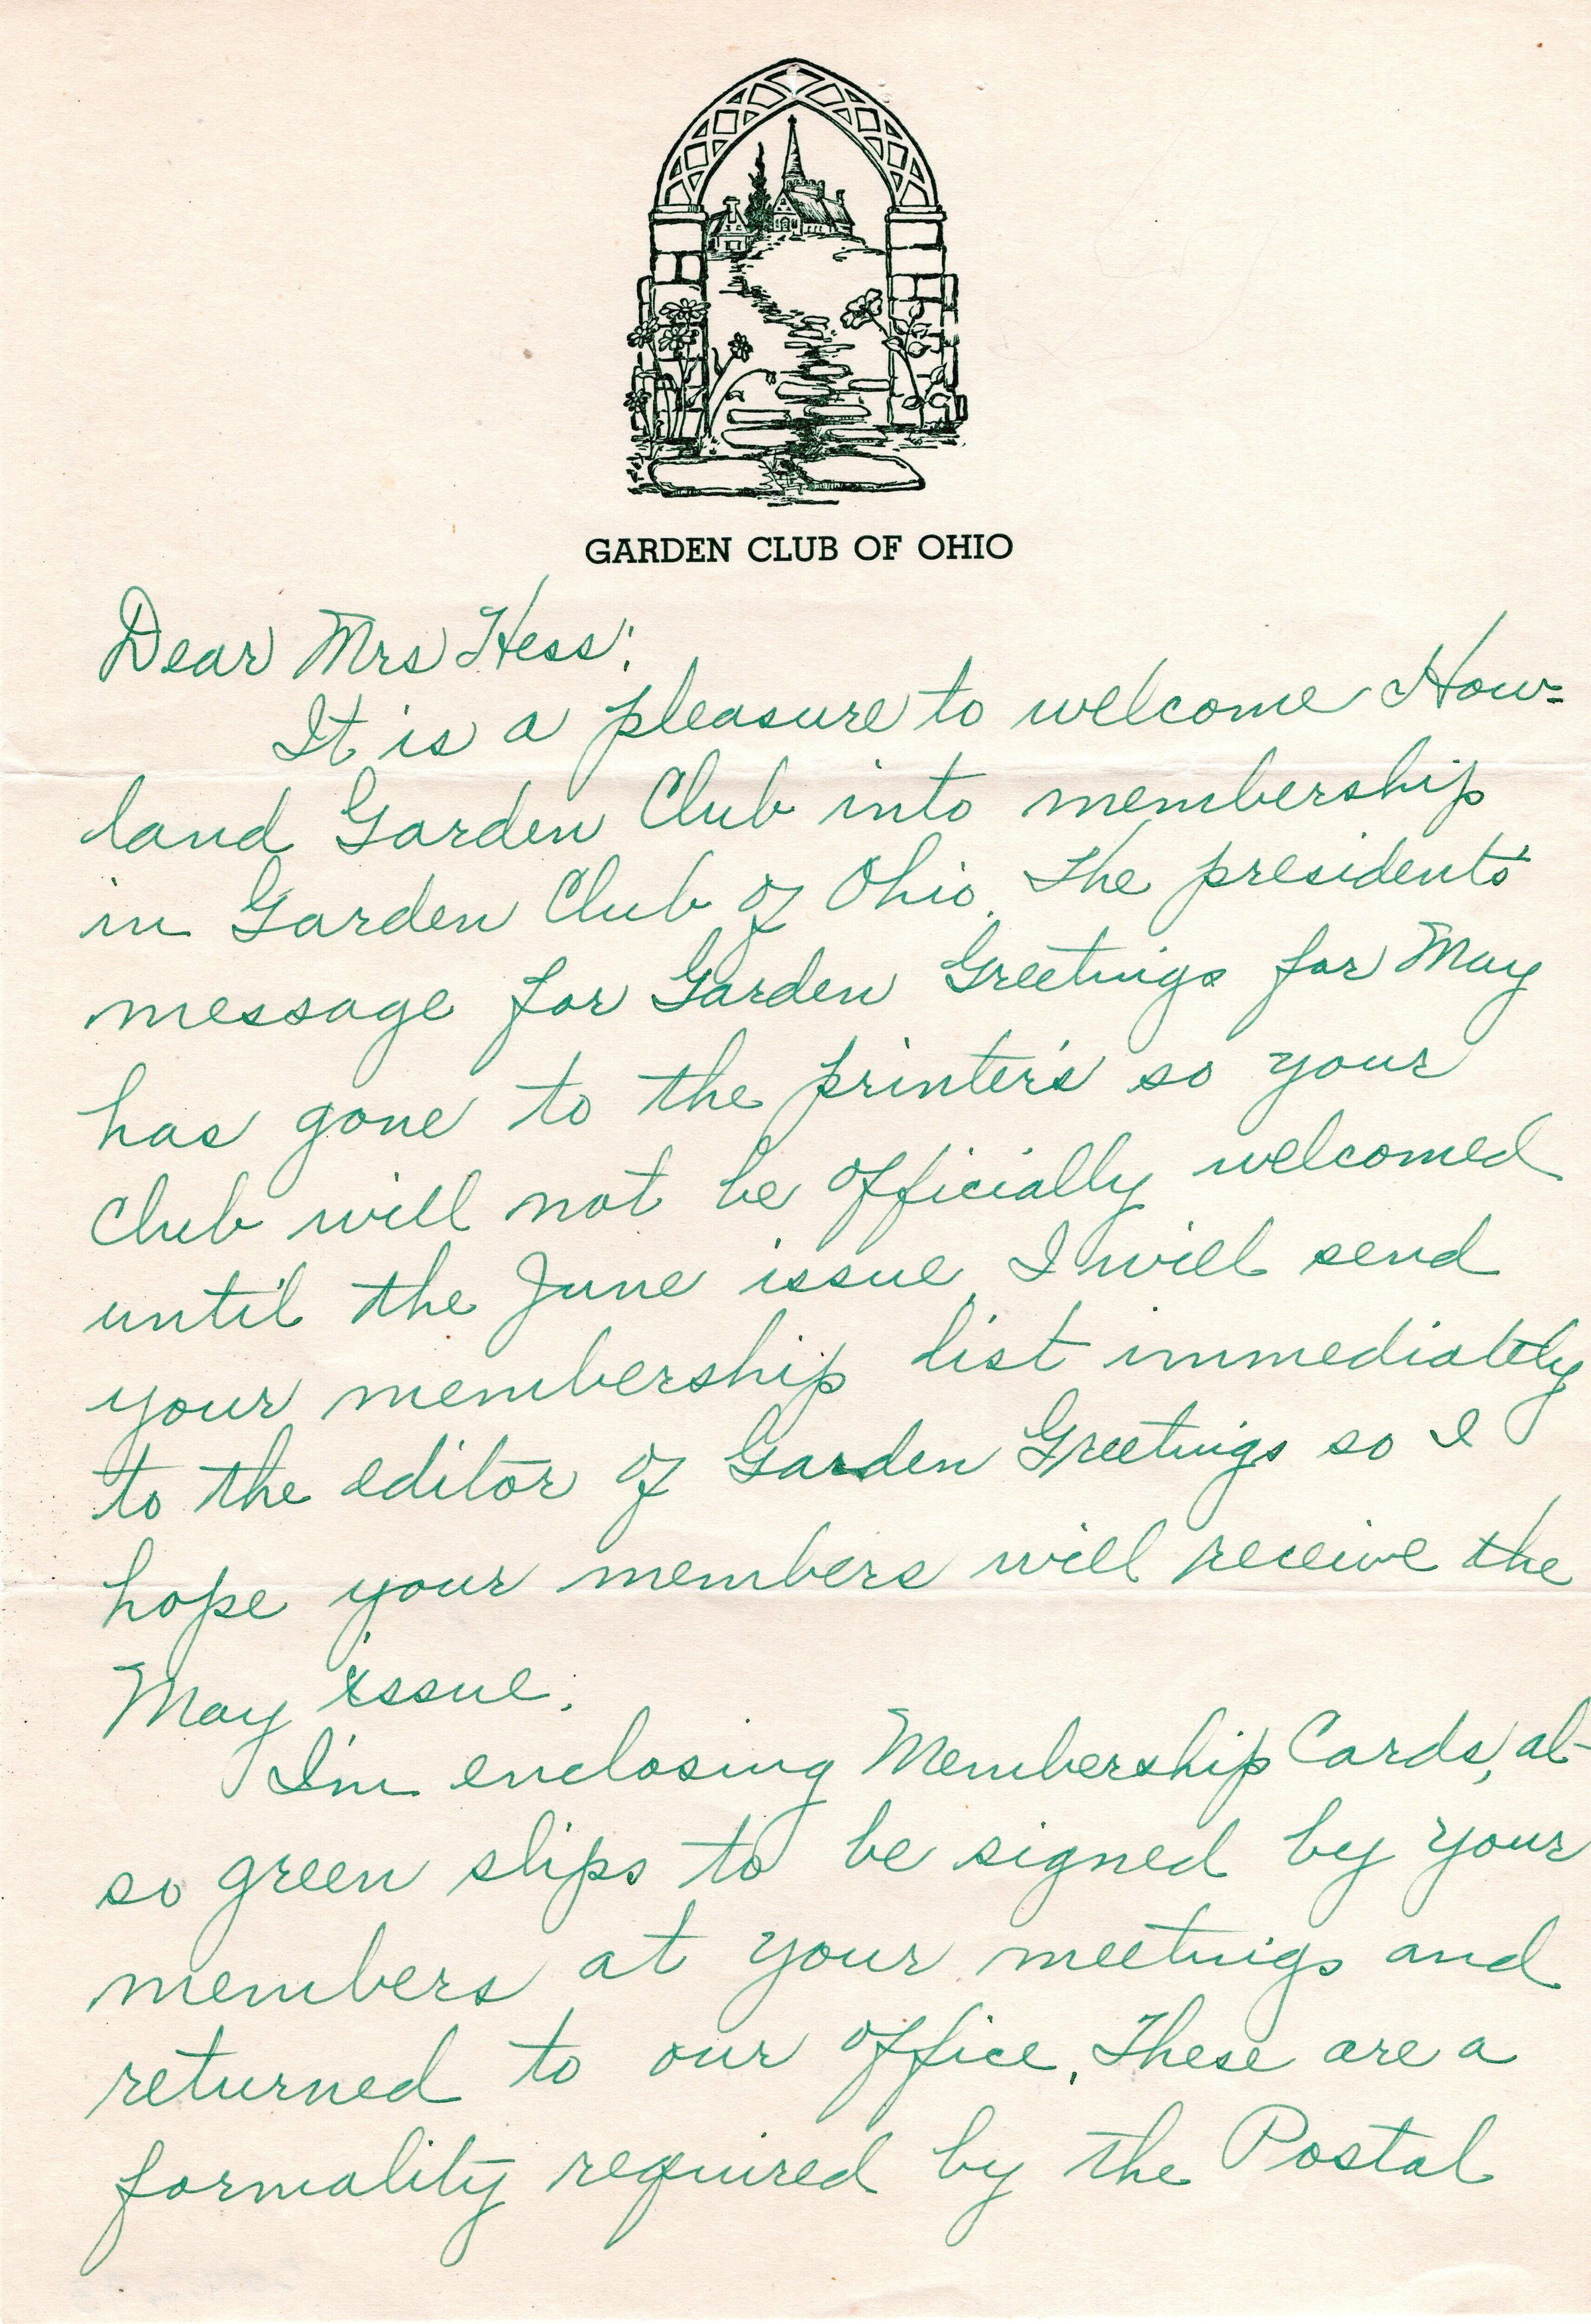 GARDEN CLUB OF OHIO
Dear Mrs Hess:
It is a pleasure to welcome How=
land Garden Club into membership
in Garden Club of Ohio. The president's
message for Garden Greetings for May
has gone to the printer's so your
Club will not be officially welcomed
until the June issue. I will send
your membership list immediately
to the editor of Garden Greetings so I
hope your members will receive the
May issue.
I'm enclosing Membership Cards, al-
so green slips to be signed by your
members at your meetings and
returned to our office. These are a
formality required by the Postal